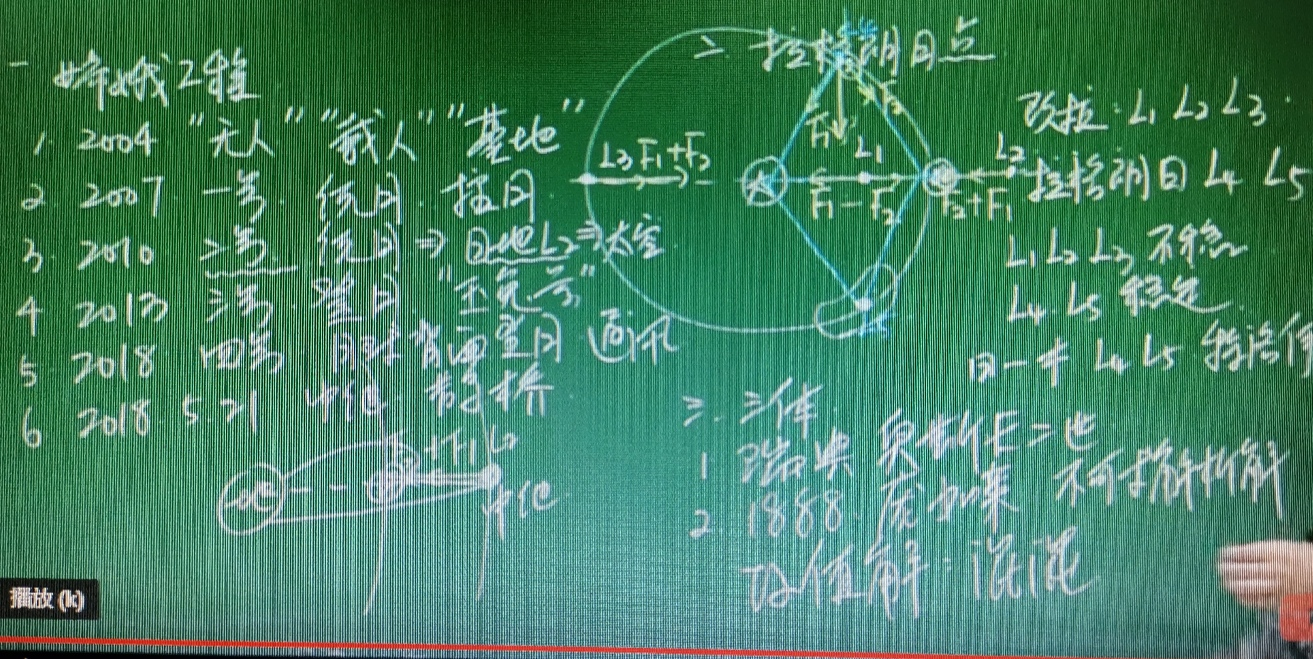 一 嫦娥工程
1. 2004 "无人" "载人" "基地"
2 2007 一号 绕月 探月
3. 2010 二号 绕月 ⇒ 日地L2 ⇒ 太空
4 2013 三号 登月 "玉兔号"
5 2018 四号 月球背面登月 通讯
6 2018 5.21 中继 鹊桥
地 月 F2+F1 L2
中继
二. 拉格朗日点
L4
F1 F2
L3 F1+F2
L1
F1-F2
L2
F2+F1
L5
欧拉: L1 L2 L3
拉格朗日 L4 L5
L1 L2 L3 不稳
L4 L5 稳定
日—木 L4 L5 特洛伊
三. 三体
1 瑞典 奥斯卡二世
2 1888 庞加莱 不可求解析解
数值解: 混沌
播放 (k)